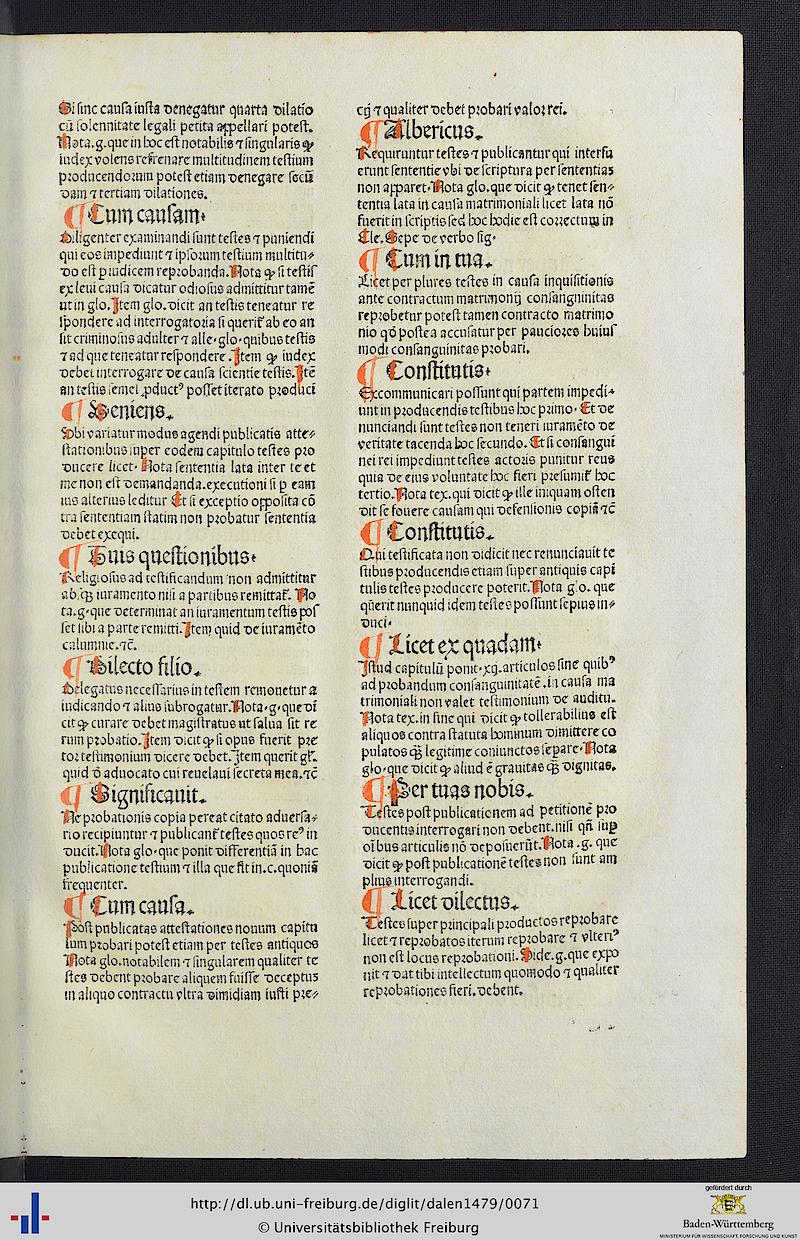 Si sine causa iusta denegatur quarta dilatio
cū solennitate legali petita appellari potest.
Nota.g.que in hoc est notabilis ⁊ singularis ꝙ
iudex volens refrenare multitudinem testium
producendorum potest etiam denegare secū
dam ⁊ tertiam dilationes.
¶ Cum causam.
Diligenter examinandi sunt testes ⁊ puniendi
qui eos impediunt ⁊ ipsorum testium multitu⸗
do est p iudicem reprobanda. Nota ꝙ si testis
ex leui causa dicatur odiosus admittitur tamē
ut in glo. Item glo. dicit an testis teneatur re
spondere ad interrogatoria si querit᷑ ab eo an
sit criminosus adulter ⁊ alle.glo.quibus testis
⁊ ad que teneatur respondere. Item ꝙ iudex
debet interrogare de causa scientie testis. Itē
an testis semel ꝓductꝰ posset iterato produci
¶ Veniens.
Vbi variatur modus agendi publicatis atte⸗
stationibus super eodem capitulo testes pro
ducere licet. Nota sententia lata inter te et
me non est demandanda.executioni si p eam
ius alterius leditur Et si exceptio opposita cō
tra sententiam statim non probatur sententia
debet exequi.
¶ Huis questionibus.
Religiosus ad testificandum non admittitur
absqꝫ iuramento nisi a partibus remittat᷑. No
ta.g.que determinat an iuramentum testis pos
set sibi a parte remitti. Item quid de iuramēto
calumnie.⁊c̄.
¶ Dilecto filio.
Delegatus necessarius in testem remouetur a
iudicando ⁊ alius subrogatur. Nota.g.que di
cit ꝙ curare debet magistratus ut salua sit re
rum probatio. Item dicit ꝙ si opus fuerit pre
tor testimonium dicere debet. Item querit gl᷑.
quid d̄ aduocato cui reuelaui secreta mea.⁊c̄
¶ Significauit.
Ne probationis copia pereat citato aduersa⸗
rio recipiuntur ⁊ publicant᷑ testes quos reꝰ in
ducit. Nota glo.que ponit differentiā in hac
publicatione testium ⁊ illa que fit in.c.quoniā
frequenter.
¶ Cum causa.
Post publicatas attestationes nouum capitu
lum probari potest etiam per testes antiquos
Nota glo.notabilem ⁊ singularem qualiter te
stes debent probare aliquem fuisse deceptus
in aliquo contractu vltra dimidiam iusti pre⸗
cij ⁊ qualiter debet probari valor rei.
¶ Albericus.
Requiruntur testes ⁊ publicantur qui interfu
erunt sententie vbi de scriptura per sententias
non apparet. Nota glo.que dicit ꝙ tenet sen⸗
tentia lata in causa matrimoniali licet lata nō
fuerit in scriptis sed hoc hodie est correctum in
Cle. Sepe de verbo sig.
¶ Cum in tua.
Licet per plures testes in causa inquisitionis
ante contractum matrimonij consanguinitas
reprobetur potest tamen contracto matrimo
nio qd̄ postea accusatur per pauciores huius
modi consanguinitas probari.
¶ Constitutis.
Excommunicari possunt qui partem impedi⸗
unt in producendis testibus hoc primo. Et de
nunciandi sunt testes non teneri iuramēto de
veritate tacenda hoc secundo. Et si consangui
nei rei impediunt testes actoris punitur reus
quia de eius voluntate hoc fieri presumit᷑ hoc
tertio. Nota tex.qui dicit ꝙ ille iniquam osten
dit se fouere causam qui defensionis copiā ⁊c̄
¶ Constitutis.
Qui testificata non didicit nec renunciauit te
stibus producendis etiam super antiquis capi
tulis testes producere poterit. Nota glo. que
querit nunquid idem testes possunt sepius in⸗
duci.
¶ Licet ex quadam.
Istud capitulū ponit.xij.articulos sine quibꝰ
ad probandum consanguinitatē.in causa ma
trimoniali non valet testimonium de auditu.
Nota tex.in fine qui dicit ꝙ tollerabilius est
aliquos contra statuta hominum dimittere co
pulatos qꝫ̄ legitime coniunctos separe. Nota
glo.que dicit ꝙ aliud ē grauitas qꝫ̄ dignitas.
¶ Per tuas nobis.
Testes post publicationem ad petitionē pro
ducentis interrogari non debent.nisi qn̄ sup
oībus articulis nō deposuerūt. Nota.g. que
dicit ꝙ post publicationē testes non sunt am
plius interrogandi.
¶ Licet dilectus.
Testes super principali productos reprobare
licet ⁊ reprobatos iterum reprobare ⁊ vlteriꝰ
non est locus reprobationi. Vide.g.que expo
nit ⁊ dat tibi intellectum quomodo ⁊ qualiter
reprobationes fieri.debent.
http://dl.ub.uni-freiburg.de/diglit/dalen1479/0071
© Universitätsbibliothek Freiburg
gefördert durch
Baden-Württemberg
MINISTERIUM FÜR WISSENSCHAFT, FORSCHUNG UND KUNST